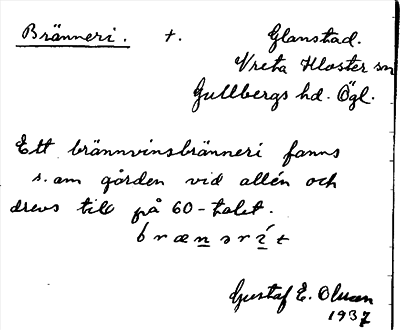 Bränneri. +. Glanstad.
Vreta Kloster sn
Gullbergs hd. Ögl.
Ett brännvinsbränneri fanns
s. om gården vid allén och
drevs till på 60-talet.
brænərít
Gustaf E. Olsson
1937